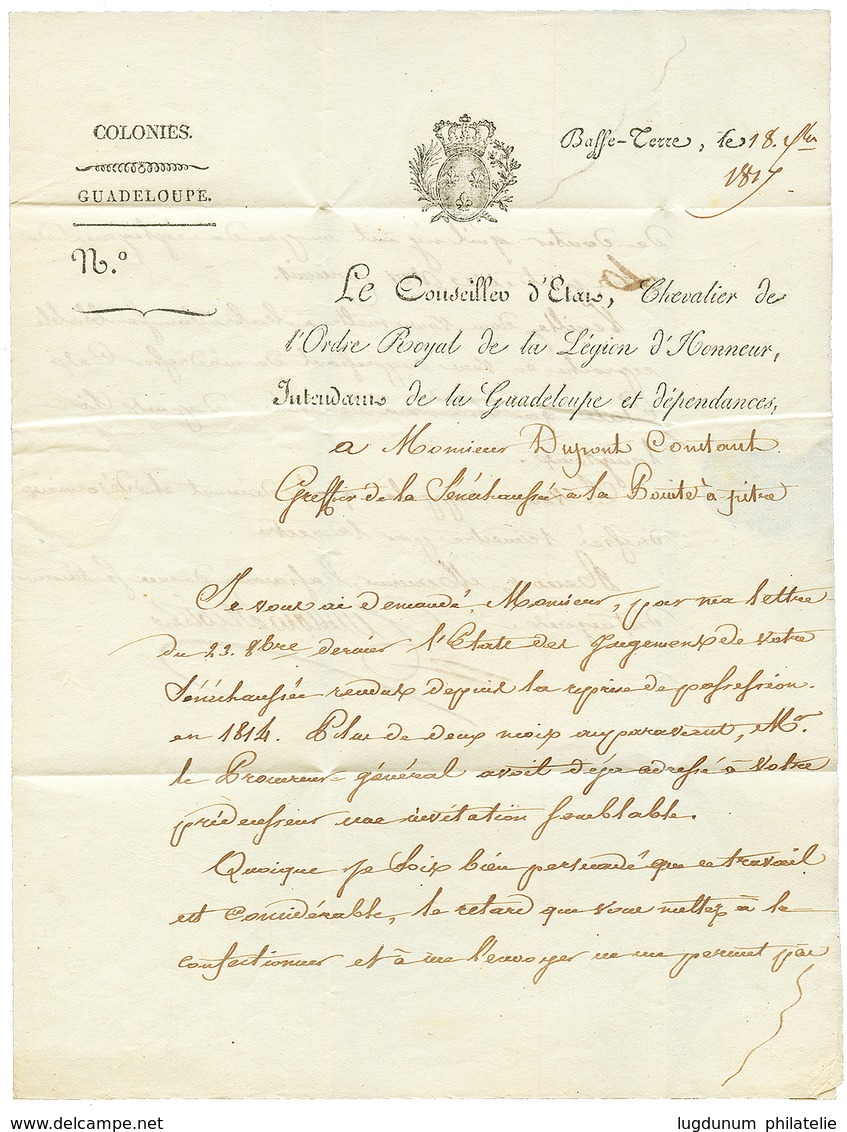 COLONIES.
GUADELOUPE.
N.º
Basse-Terre, le 18. 9bre
1817
Le Conseiller d'Etat, Chevalier de
l'Ordre Royal de la Légion d'Honneur,
Intendant de la Guadeloupe et dépendances,
a Monsieur Dupont Constant
Greffier de la Sénéchaussée à la Pointe à pitre
Je vous ai demandé, Monsieur, par ma lettre
du 23. 8bre dernier l'Etat des jugements de votre
Sénéchaussée rendus depuis la reprise de possession
en 1814. Plus de deux mois auparavant, Mr.
le Procureur-général avoit déja adressé à votre
prédecesseur une invitation semblable.
Quoique je sois bien persuadé que ce travail
est considérable, le retard que vous mettez à le
confectionner et à me l'envoyer ne me permet pas
www.delcampe.net
lugdunum philatelie